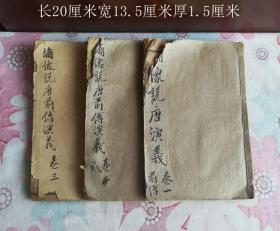 长20厘米宽13.5厘米厚1.5厘米
繡像説唐演義 前傳 卷一
繡像説唐前傳演義 卷貳
繡像説唐前傳演義 卷三